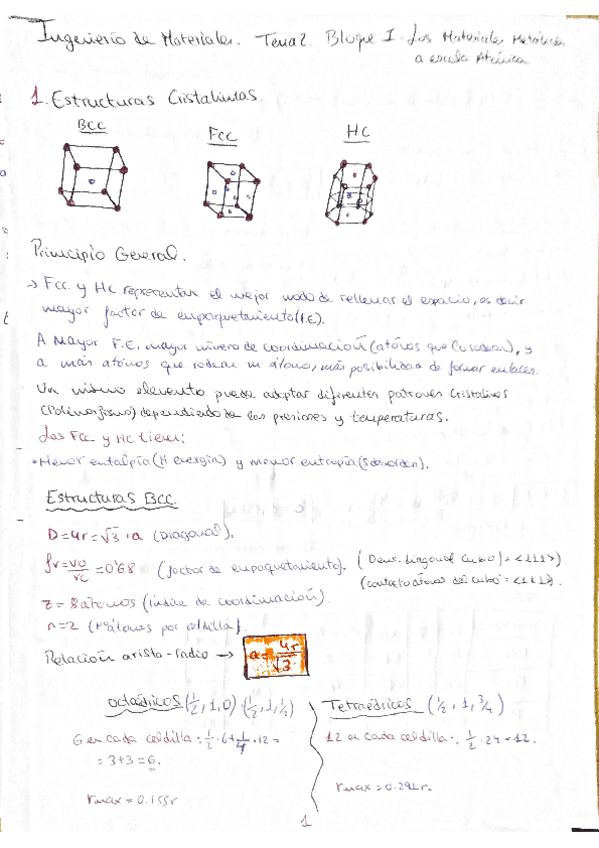 Ingeniería de Materiales. Tema 2. Bloque I. Los Materiales Metálicos
a escala Atómica
1. Estructuras Cristalinas.
BCC
FCC
HC
Principio General.
→ Fcc y Hc representan el mejor modo de rellenar el espacio, es decir
mayor factor de empaquetamiento (F.E).
A Mayor F.E, mayor número de coordinación (átomos que lo rodean), y
a más átomos que rodean un átomo, más posibilidad de formar enlaces.
Un mismo elemento puede adoptar diferentes patrones cristalinos
(Polimorfismo) dependiendo de las presiones y temperaturas.
Las Fcc y Hc tienen:
• Menor entalpía (H energía) y menor entropía (S desorden).
Estructuras Bcc.
D = 4r = √3 · a (Diagonal).
fv = vo/vc = 0'68 (factor de empaquetamiento). (Dens. diagonal cubo) = <111>)
(contacto átomos del cubo = <111>).
z = 8 átomos (índice de coordinación).
n = 2 (Nº átomos por celdilla).
Relación arista-radio → a = 4r/√3
octaédricos (1/2, 1, 0) · (1/2, 1, 1/2)
6 en cada celdilla: 1/2 · 6 + 1/4 · 12 =
= 3 + 3 = 6.
rmax = 0.155r
Tetraédricos (1/2, 1, 3/4)
12 en cada celdilla: 1/2 · 24 = 12.
rmax = 0.291r.
1